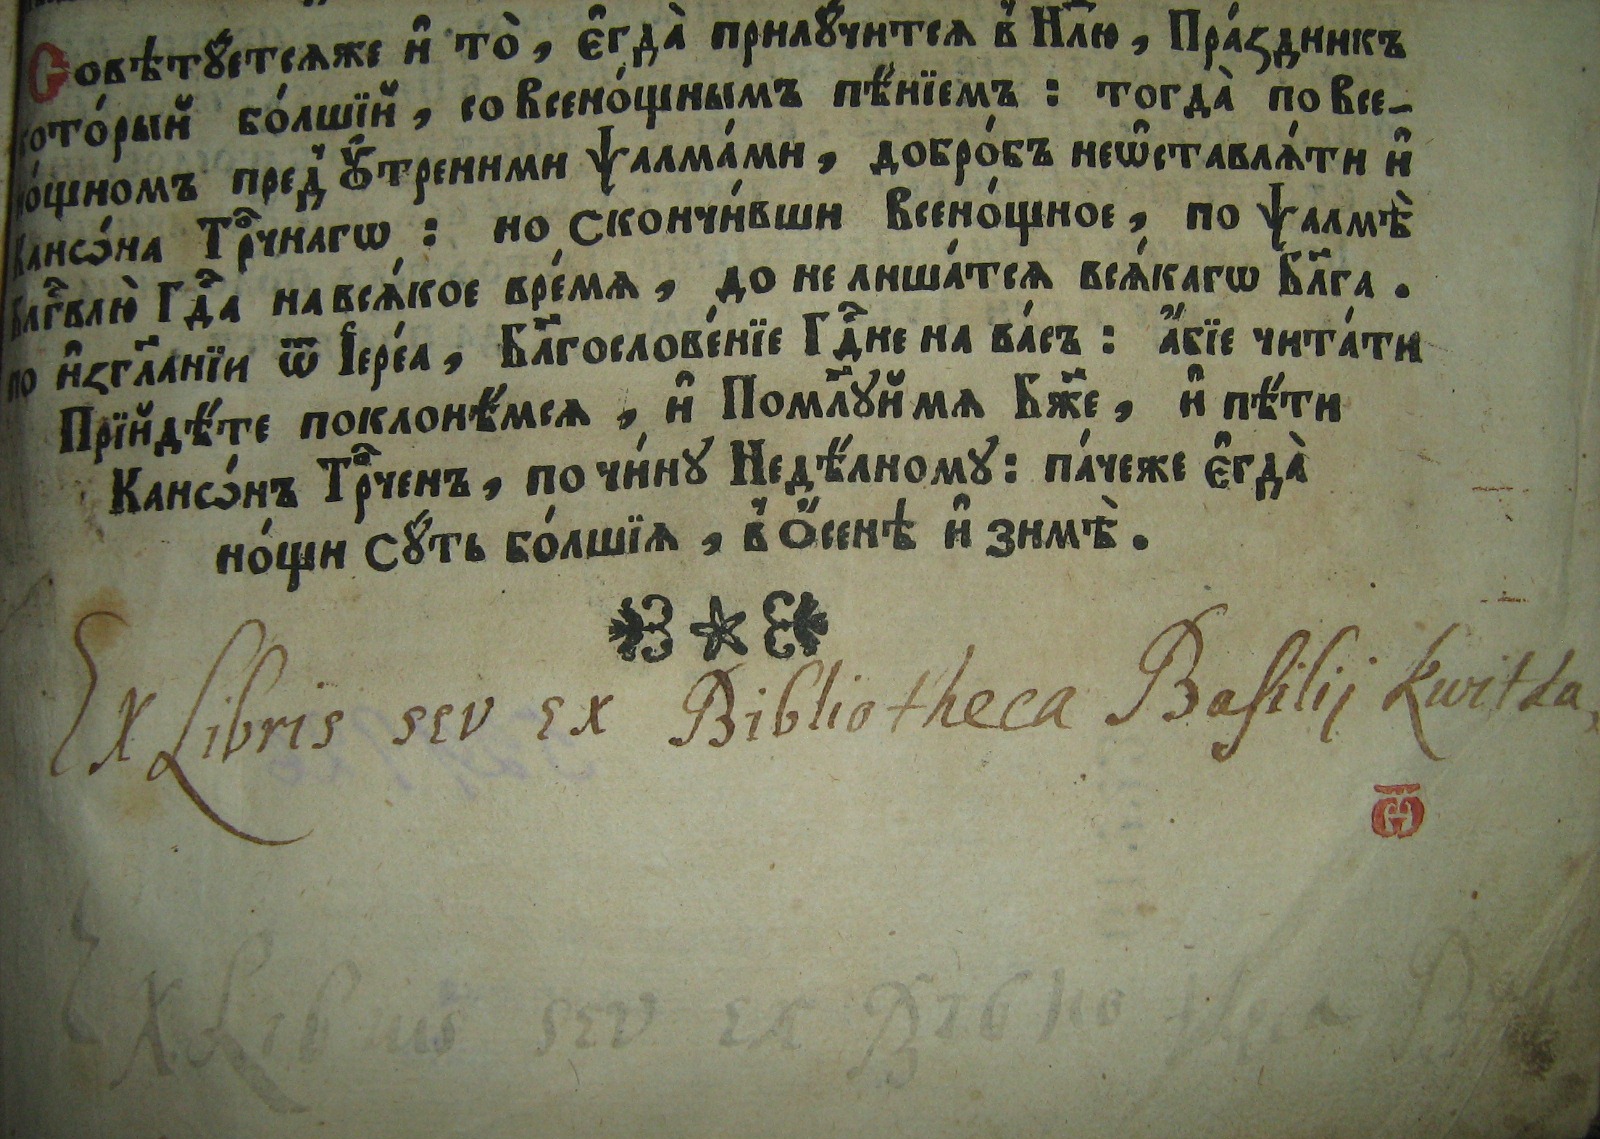 Совѣтꙋетсѧже и҆̑ то̀, є҆̑гда̀ прилꙋ́читсѧ в̾ Нл҃ю, Пра́здникъ
кото́рый бо́лшїй, со Всено́щнымъ пѣ́нїемъ : тогда̀ по Все-
но́щномъ пред̾ Ѹ҆́тренними Ѱалма́ми, добро́бъ неѡ҆ставлѧ́ти и҆̑
Кансѡ́на Трⷪ҇чнагѡ : но скончи́вши Всено́щное, по Ѱалмѣ̀
Блг҃влю̀ Гдⷭ҇а на всѧ́кое вре́мѧ, до не лиша́тсѧ всѧ́кагѡ Бл҃га .
по и҆згл҃анїи ѿ І҆ере́а, Бл҃гослове́нїе Гдⷭ҇не на ва́съ : а҆́бїе чита́ти
Прїйдѣ́те поклонѣ́мсѧ, и҆̑ Помл҃ꙋй мѧ Бж҃е, и҆̑ пѣ́ти
Кансѡ́нъ Трⷪ҇ченъ, по чи́нꙋ Недѣ́лномꙋ : па́чеже є҆̑гда̀
но́щи сꙋ́ть бо́лшїѧ, в̾ Ѻ҆́сенѣ и҆̑ зимѣ̀ .
Ex Libris seu ex Bibliotheca Basilij Kwitka,
Ex Libris seu ex Biblio